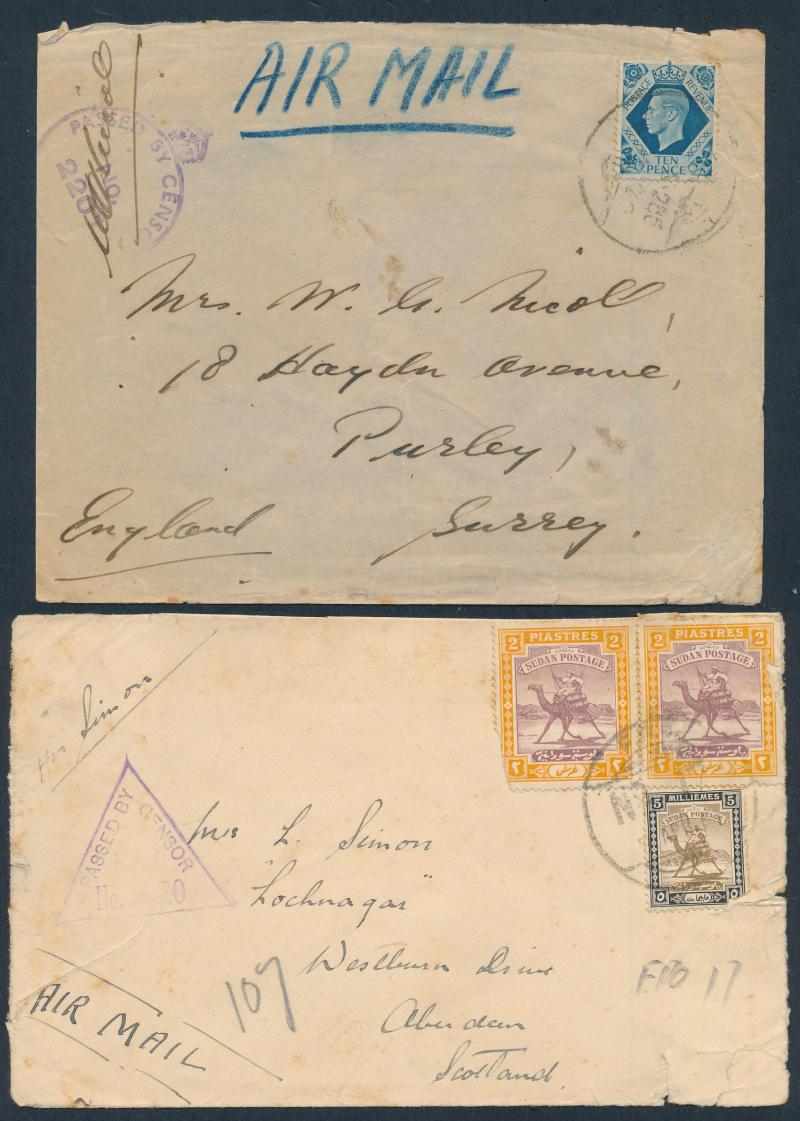 AIR MAIL
PASSED BY CENSO
No.
220
POSTAGE REVENUE
TEN
PENCE
Mrs. W. G. Nicoll,
18 Haydn Avenue,
Purley,
England Surrey.
2 PIASTRES 2
SUDAN POSTAGE
٢ ٢
2 PIASTRES 2
SUDAN POSTAGE
٢ ٢
5 MILLIÈMES 5
SUDAN POSTAGE
٥ ٥
Simon
PASSED BY CENSOR
No. 20
Mrs L. Simon
"Lochnagar"
Westburn Drive
Aberdeen
Scotland.
AIR MAIL
107
FPO 17